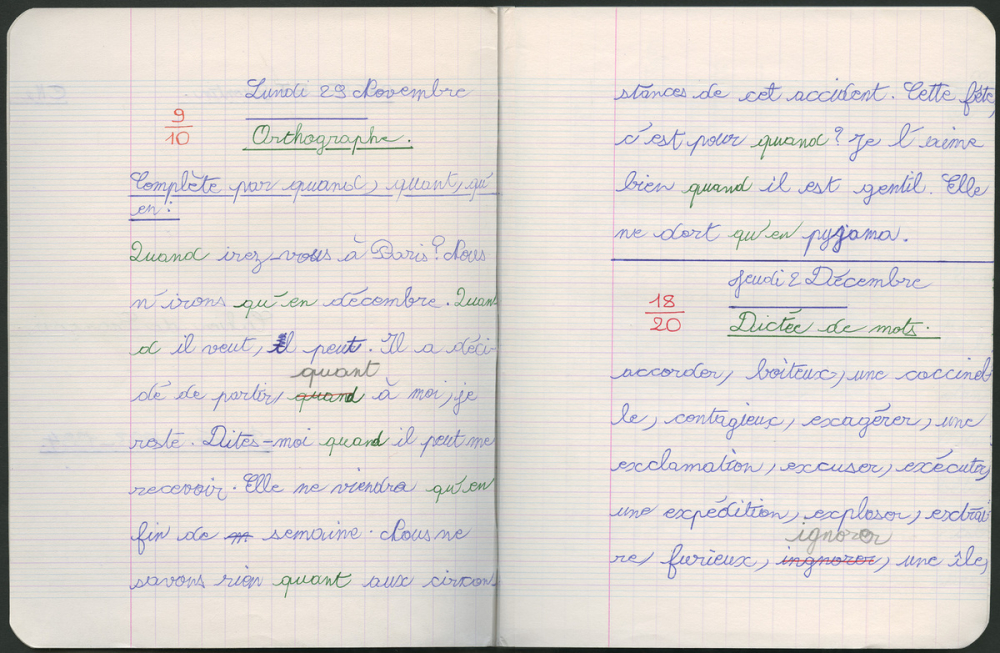 Lundi 29 Novembre
9/10
Orthographe.
Complète par quand, quant, qu'
en :
Quand irez-vous à Paris ? Nous
n'irons qu'en décembre. Quan
d il veut, il peut. Il a déci-
quant
dé de partir, quand à moi, je
reste. Dites-moi quand il peut me
recevoir. Elle ne viendra qu'en
fin de m semaine. Nous ne
savons rien quant aux circons
stances de cet accident. Cette fête,
c'est pour quand ? Je l'aime
bien quand il est gentil. Elle
ne dort qu'en pyjama.
Jeudi 2 Décembre
18/20
Dictée de mots.
accorder, boîteux, une coccinel
le, contagieux, exagérer, une
exclamation, excuser, exécuter,
une expédition, exploser, extrai
ignorer
re, furieux, ingnorer, une île,